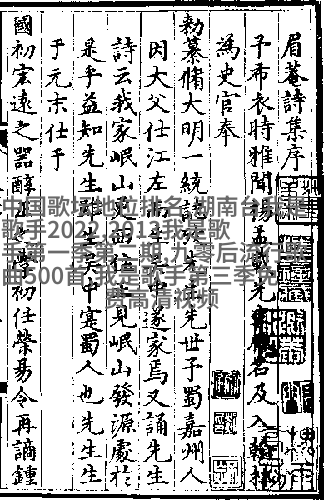 眉菴詩集序
予布衣時雅聞楊孟載先
名及入翰林
為史官奉
勑纂脩大明一統誌
先世予蜀嘉州人
因大父仕江左
生吳中遂家焉又誦先生
詩云我家岷山
西住
見岷山發源處於
是乎益知先生雖生吳中寔蜀人也先生生
于元末仕于
國初宏遠之器醇
學初任滎昜令再謫鍾
中国歌坛地位排名,湖南台我是
歌手2021,2013我是歌
手第一季第一期,九零后流行歌
曲500首,我是歌手第三季免
费高清视频